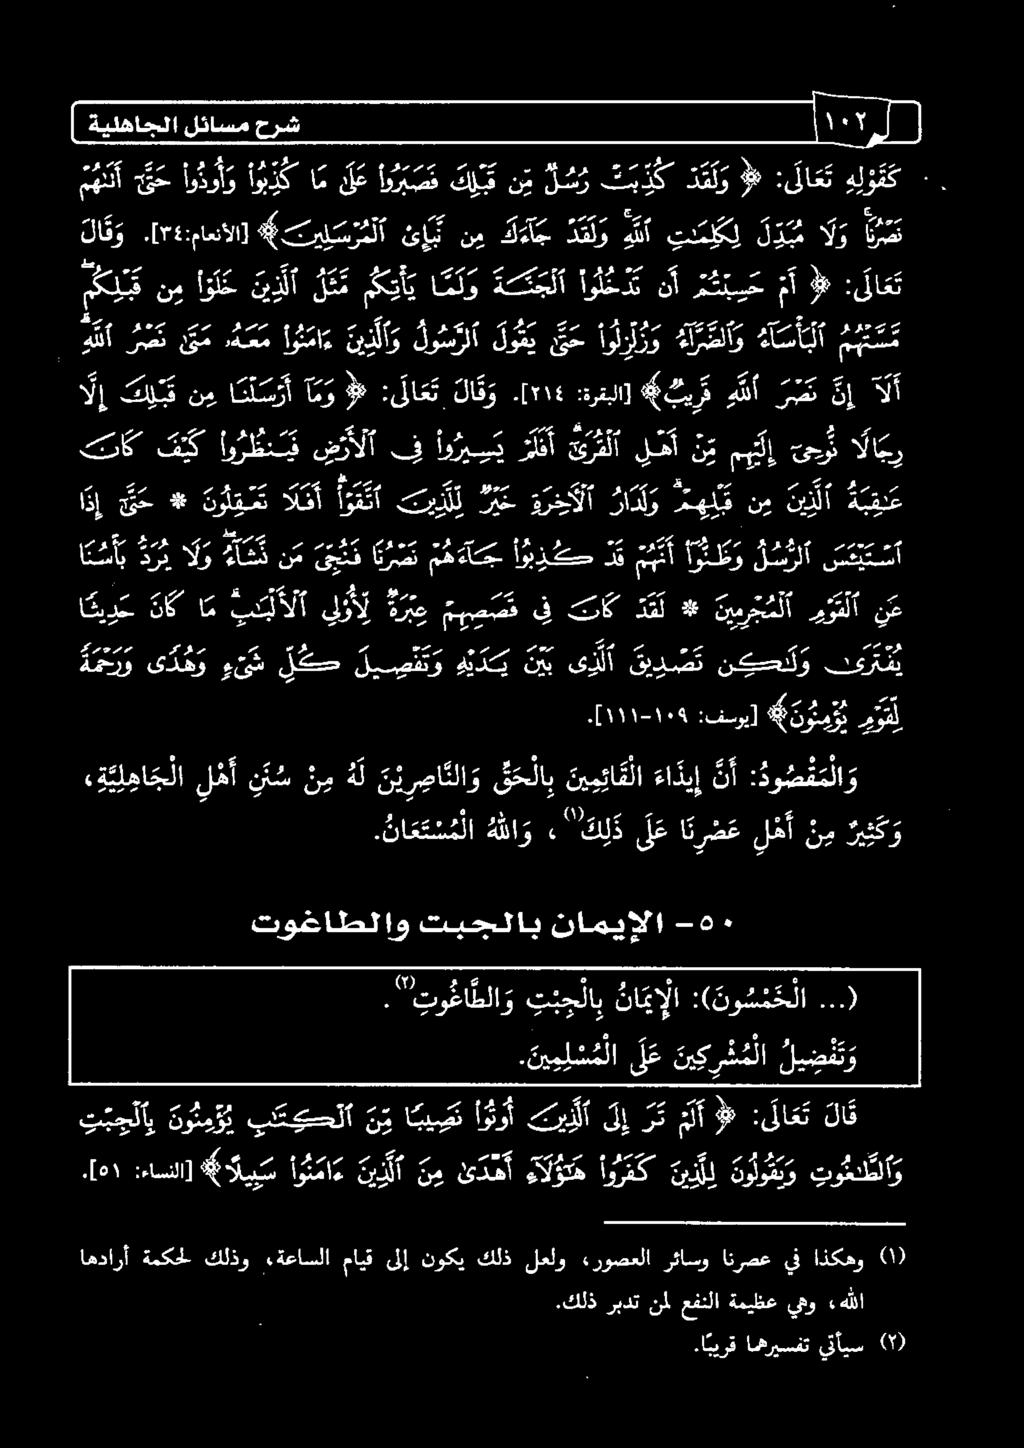 ١٠٢ شرح مسائل الجاهلية
كَقَوْلِهِ تَعَالَى: ﴿وَلَقَدْ كُذِّبَتْ رُسُلٌ مِّن قَبْلِكَ فَصَبَرُوا۟ عَلَىٰ مَا كُذِّبُوا۟ وَأُوذُوا۟ حَتَّىٰٓ أَتَىٰهُمْ
نَصْرُنَا ۚ وَلَا مُبَدِّلَ لِكَلِمَـٰتِ ٱللَّهِ ۚ وَلَقَدْ جَآءَكَ مِن نَّبَإِى۟ ٱلْمُرْسَلِينَ﴾ [الأنعام:٣٤]. وَقَالَ
تَعَالَى: ﴿أَمْ حَسِبْتُمْ أَن تَدْخُلُوا۟ ٱلْجَنَّةَ وَلَمَّا يَأْتِكُم مَّثَلُ ٱلَّذِينَ خَلَوْا۟ مِن قَبْلِكُم ۖ
مَّسَّتْهُمُ ٱلْبَأْسَآءُ وَٱلضَّرَّآءُ وَزُلْزِلُوا۟ حَتَّىٰ يَقُولَ ٱلرَّسُولُ وَٱلَّذِينَ ءَامَنُوا۟ مَعَهُۥ مَتَىٰ نَصْرُ ٱللَّهِ ۗ
أَلَآ إِنَّ نَصْرَ ٱللَّهِ قَرِيبٌ﴾ [البقرة: ٢١٤]. وَقَالَ تَعَالَى: ﴿وَمَآ أَرْسَلْنَا مِن قَبْلِكَ إِلَّا
رِجَالًا نُّوحِىٓ إِلَيْهِم مِّنْ أَهْلِ ٱلْقُرَىٰٓ ۗ أَفَلَمْ يَسِيرُوا۟ فِى ٱلْأَرْضِ فَيَنظُرُوا۟ كَيْفَ كَانَ
عَـٰقِبَةُ ٱلَّذِينَ مِن قَبْلِهِمْ ۗ وَلَدَارُ ٱلْـَٔاخِرَةِ خَيْرٌ لِّلَّذِينَ ٱتَّقَوْا۟ ۗ أَفَلَا تَعْقِلُونَ * حَتَّىٰٓ إِذَا
ٱسْتَيْـَٔسَ ٱلرُّسُلُ وَظَنُّوٓا۟ أَنَّهُمْ قَدْ كُذِبُوا۟ جَآءَهُمْ نَصْرُنَا فَنُجِّىَ مَن نَّشَآءُ ۖ وَلَا يُرَدُّ بَأْسُنَا
عَنِ ٱلْقَوْمِ ٱلْمُجْرِمِينَ * لَقَدْ كَانَ فِى قَصَصِهِمْ عِبْرَةٌ لِّأُو۟لِى ٱلْأَلْبَـٰبِ ۗ مَا كَانَ حَدِيثًا
يُفْتَرَىٰ وَلَـٰكِن تَصْدِيقَ ٱلَّذِى بَيْنَ يَدَيْهِ وَتَفْصِيلَ كُلِّ شَىْءٍ وَهُدًى وَرَحْمَةً
لِّقَوْمٍ يُؤْمِنُونَ﴾ [يوسف: ١٠٩-١١١].
وَالْمَقْصُودُ: أَنَّ إِيذَاءَ الْقَائِمِينَ بِالْحَقِّ وَالنَّاصِرِينَ لَهُ مِنْ سُنَنِ أَهْلِ الْجَاهِلِيَّةِ،
وَكَثِيرٌ مِنْ أَهْلِ عَصْرِنَا عَلَى ذَلِكَ(١)، وَاللهُ الْمُسْتَعَانُ.
٥٠- الإيمان بالجبت والطاغوت
(... الْخَمْسُونَ): الْإِيمَانُ بِالْجِبْتِ وَالطَّاغُوتِ(٢).
وَتَفْضِيلُ الْمُشْرِكِينَ عَلَى الْمُسْلِمِينَ.
قَالَ تَعَالَى: ﴿أَلَمْ تَرَ إِلَى ٱلَّذِينَ أُوتُوا۟ نَصِيبًا مِّنَ ٱلْكِتَـٰبِ يُؤْمِنُونَ بِٱلْجِبْتِ
وَٱلطَّـٰغُوتِ وَيَقُولُونَ لِلَّذِينَ كَفَرُوا۟ هَـٰٓؤُلَآءِ أَهْدَىٰ مِنَ ٱلَّذِينَ ءَامَنُوا۟ سَبِيلًا﴾ [النساء: ٥١].
(١) وهكذا في عصرنا وسائر العصور، ولعل ذلك يكون إلى قيام الساعة، وذلك لحكمة أرادها
الله، وهي عظيمة النفع لمن تدبر ذلك.
(٢) سيأتي تفسيرهما قريبًا.